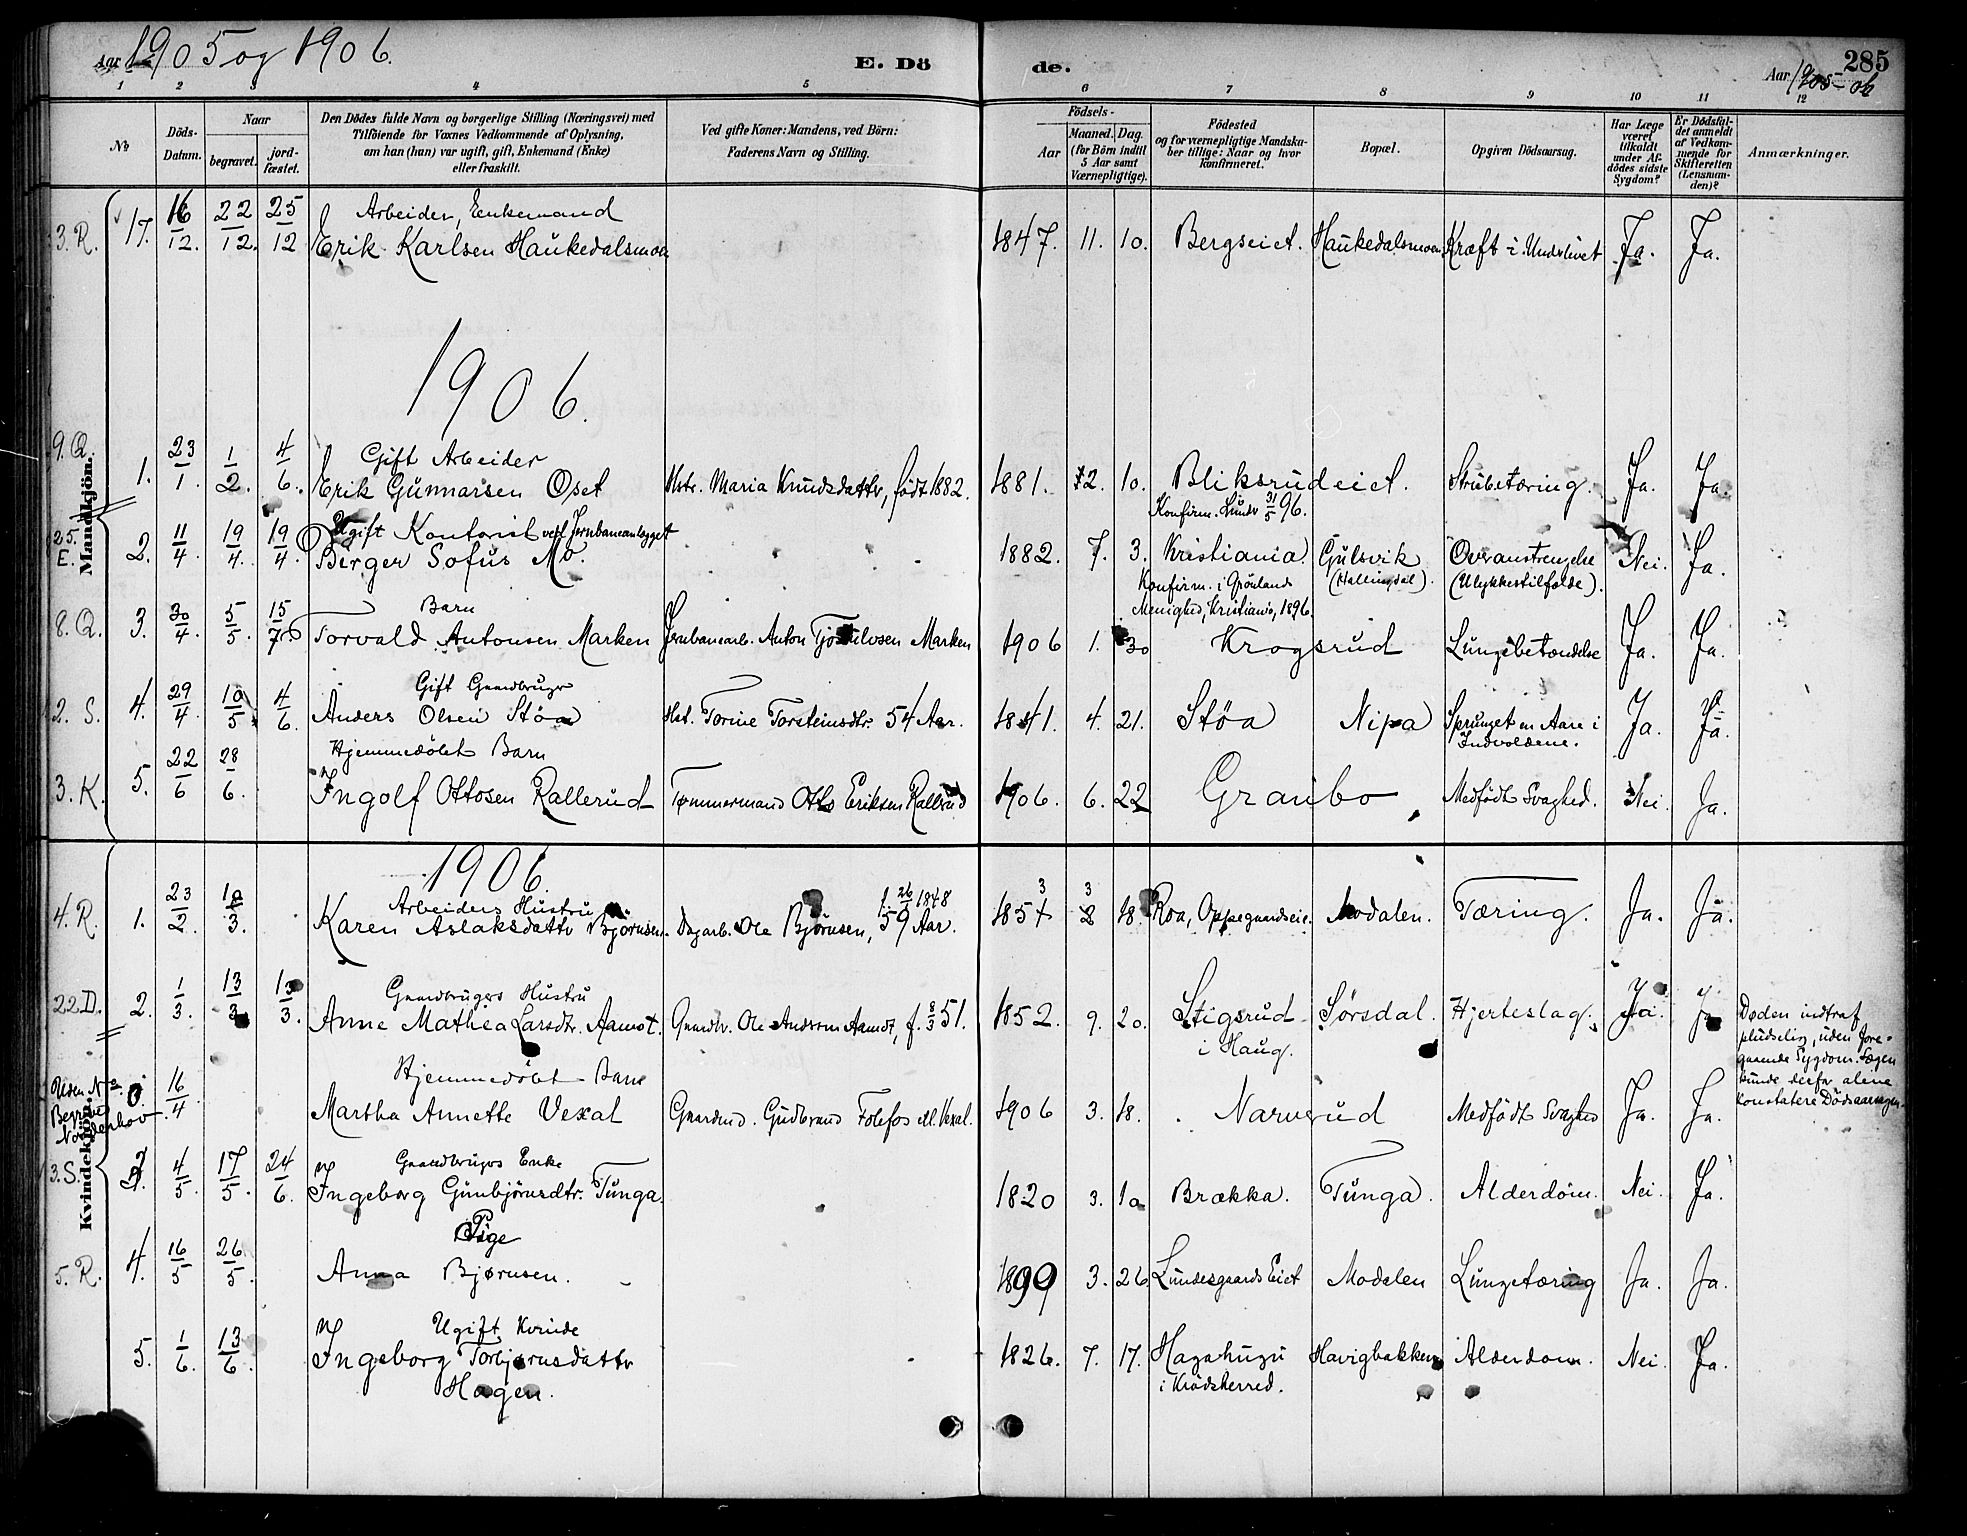 Aar 1905 og 1906.
E. Döde.
285
Aar 1905-06
1 2 3 4 5 6 7 8 9 10 11 12
No
Döds-Datum.
Naar
begravet.
jord-fæstet.
Den Dödes fulde Navn og borgerlige Stilling (Næringsvei) med
Tilföiende for Voxnes Vedkommende af Oplysning,
om han (hun) var ugift, gift, Enkemand (Enke)
eller fraskilt.
Ved gifte Koner: Mandens, ved Börn:
Faderens Navn og Stilling.
Födsels-
Aar
Maaned. Dag.
(for Börn indtil
5 Aar samt
Værnepligtige).
Födested
og for værnepligtige Mandska-
ber tillige: Naar og hvor
konfirmeret.
Bopæl.
Opgiven Dödsaarsag.
Har Læge
været
tilkaldt
under Af-
dödes sidste
Sygdom?
Er Dödsfal-
det anmeldt
af Vedkom-
mende for
Skifteretten
(Lensman-
den)?
Anmærkninger.
Arbeider, Enkemand
3. R. 17. 16/12. 22/12. 25/12 Erik Karlsen Haukedalsmoa 1847. 11. 10. Bergseiet. Haukedalsmoa Kræft i Underlivet Ja. Ja.
1906.
Mandkjön.
Gift Arbeider
9. Q. 1. 23/1. 1/2. 4/6. Erik Gunnarsen Oset Hstr. Maria Knudsdattr, född 1882. 1881. 12. 10. Bliksrudeiet. Strubetæring. Ja. Ja.
Konfirm. Lunder 31/5 96.
Ugift Kontorist ved Jernbaneanlægget
25. E. 2. 11/4. 19/4. 19/4. Birger Sofus Mo. 1882. 7. 3. Kristiania. Gulsvik Overanstrengelse Nei. Ja.
Konfirm. i Grönland (Hallingdal). (Ulykkestilfælde).
Menighed, Kristiania, 1896.
Barn
8. Q. 3. 30/4. 5/5. 15/7. Torvald Antonsen Marken Jernbanearb. Anton Marken 1906 1. 30 Krogsrud Lungebetændelse Ja. Ja.
Gift Gaardbruger
2. S. 4. 29/4. 10/5. 4/6. Anders Olsen Stöa Hst. Torine Torsteinsdtr. 54 Aar. 1841. 4. 21. Stöa Nipa Sprunget en Aare i Ja. Ja.
Indvoldene.
Hjemmedöbt Barn
3. K. 5. 22/6 28/6. Ingolf Ottosen Rallerud Tømmermand Otto Eriksen Rallerud 1906. 6. 22 Graubo Medfödt Svaghed. Nei. Ja.
Kvindekjön.
1906.
Arbeiders Hustru f. 26/2 1848 3 3
4. R. 1. 23/2. 10/3. Karen Aslaksdattr Björnsen. Dagarb. Ole Björnsen, 59 Aar. 185 8 18. Roa, Oppegaardseie. Modalen. Tæring. Ja. Ja.
Gaardbrugers Hustru
22. D. 2. 1/3. 13/3 13/3. Anne Mathea Larsdtr. Aamot. Gaardbr. Ole Andersen Aamot, f. 8/3 51. 1852. 9. 20. Stigsrud Sørsdal. Hjerteslag. Ja. Ja
i Haug.
Døden indtraf
pludselig, uden fore-
gaaende Sygdom. Lægen
kunde derfor alene
konstatere Dödsaarsagen.
Hjemmedöbt Barn
Uden No. Begravet Norderhov 0. 16/4. Martha Annette Vexal Gaardmd. Gudbrand Folefos ell. Vexal. 1906 3. 18. Narverud Medfödt Svaghed Ja. Ja.
Gaardbrugers Enke
3. S. 3. 4/5. 17/5. 24/6. Ingeborg Gunbjörnsdtr. Tunga. 1820 3. 10 Brækka. Tunga. Alderdöm. Nei. Ja.
Pige
5. R. 4. 16/5 26/5. Anna Bjørnsen. 1899 3. 26 Lundesgaards Eiet Modalen Lungetæring Ja. Ja.
Ugift Kvinde
5. 1/6. 13/6. Ingeborg Torbjørnsdattr 1826. 7. 17. Hagahugu Havigbakken Alderdom. Nei. Ja.
Hagen. i Krödsherred.